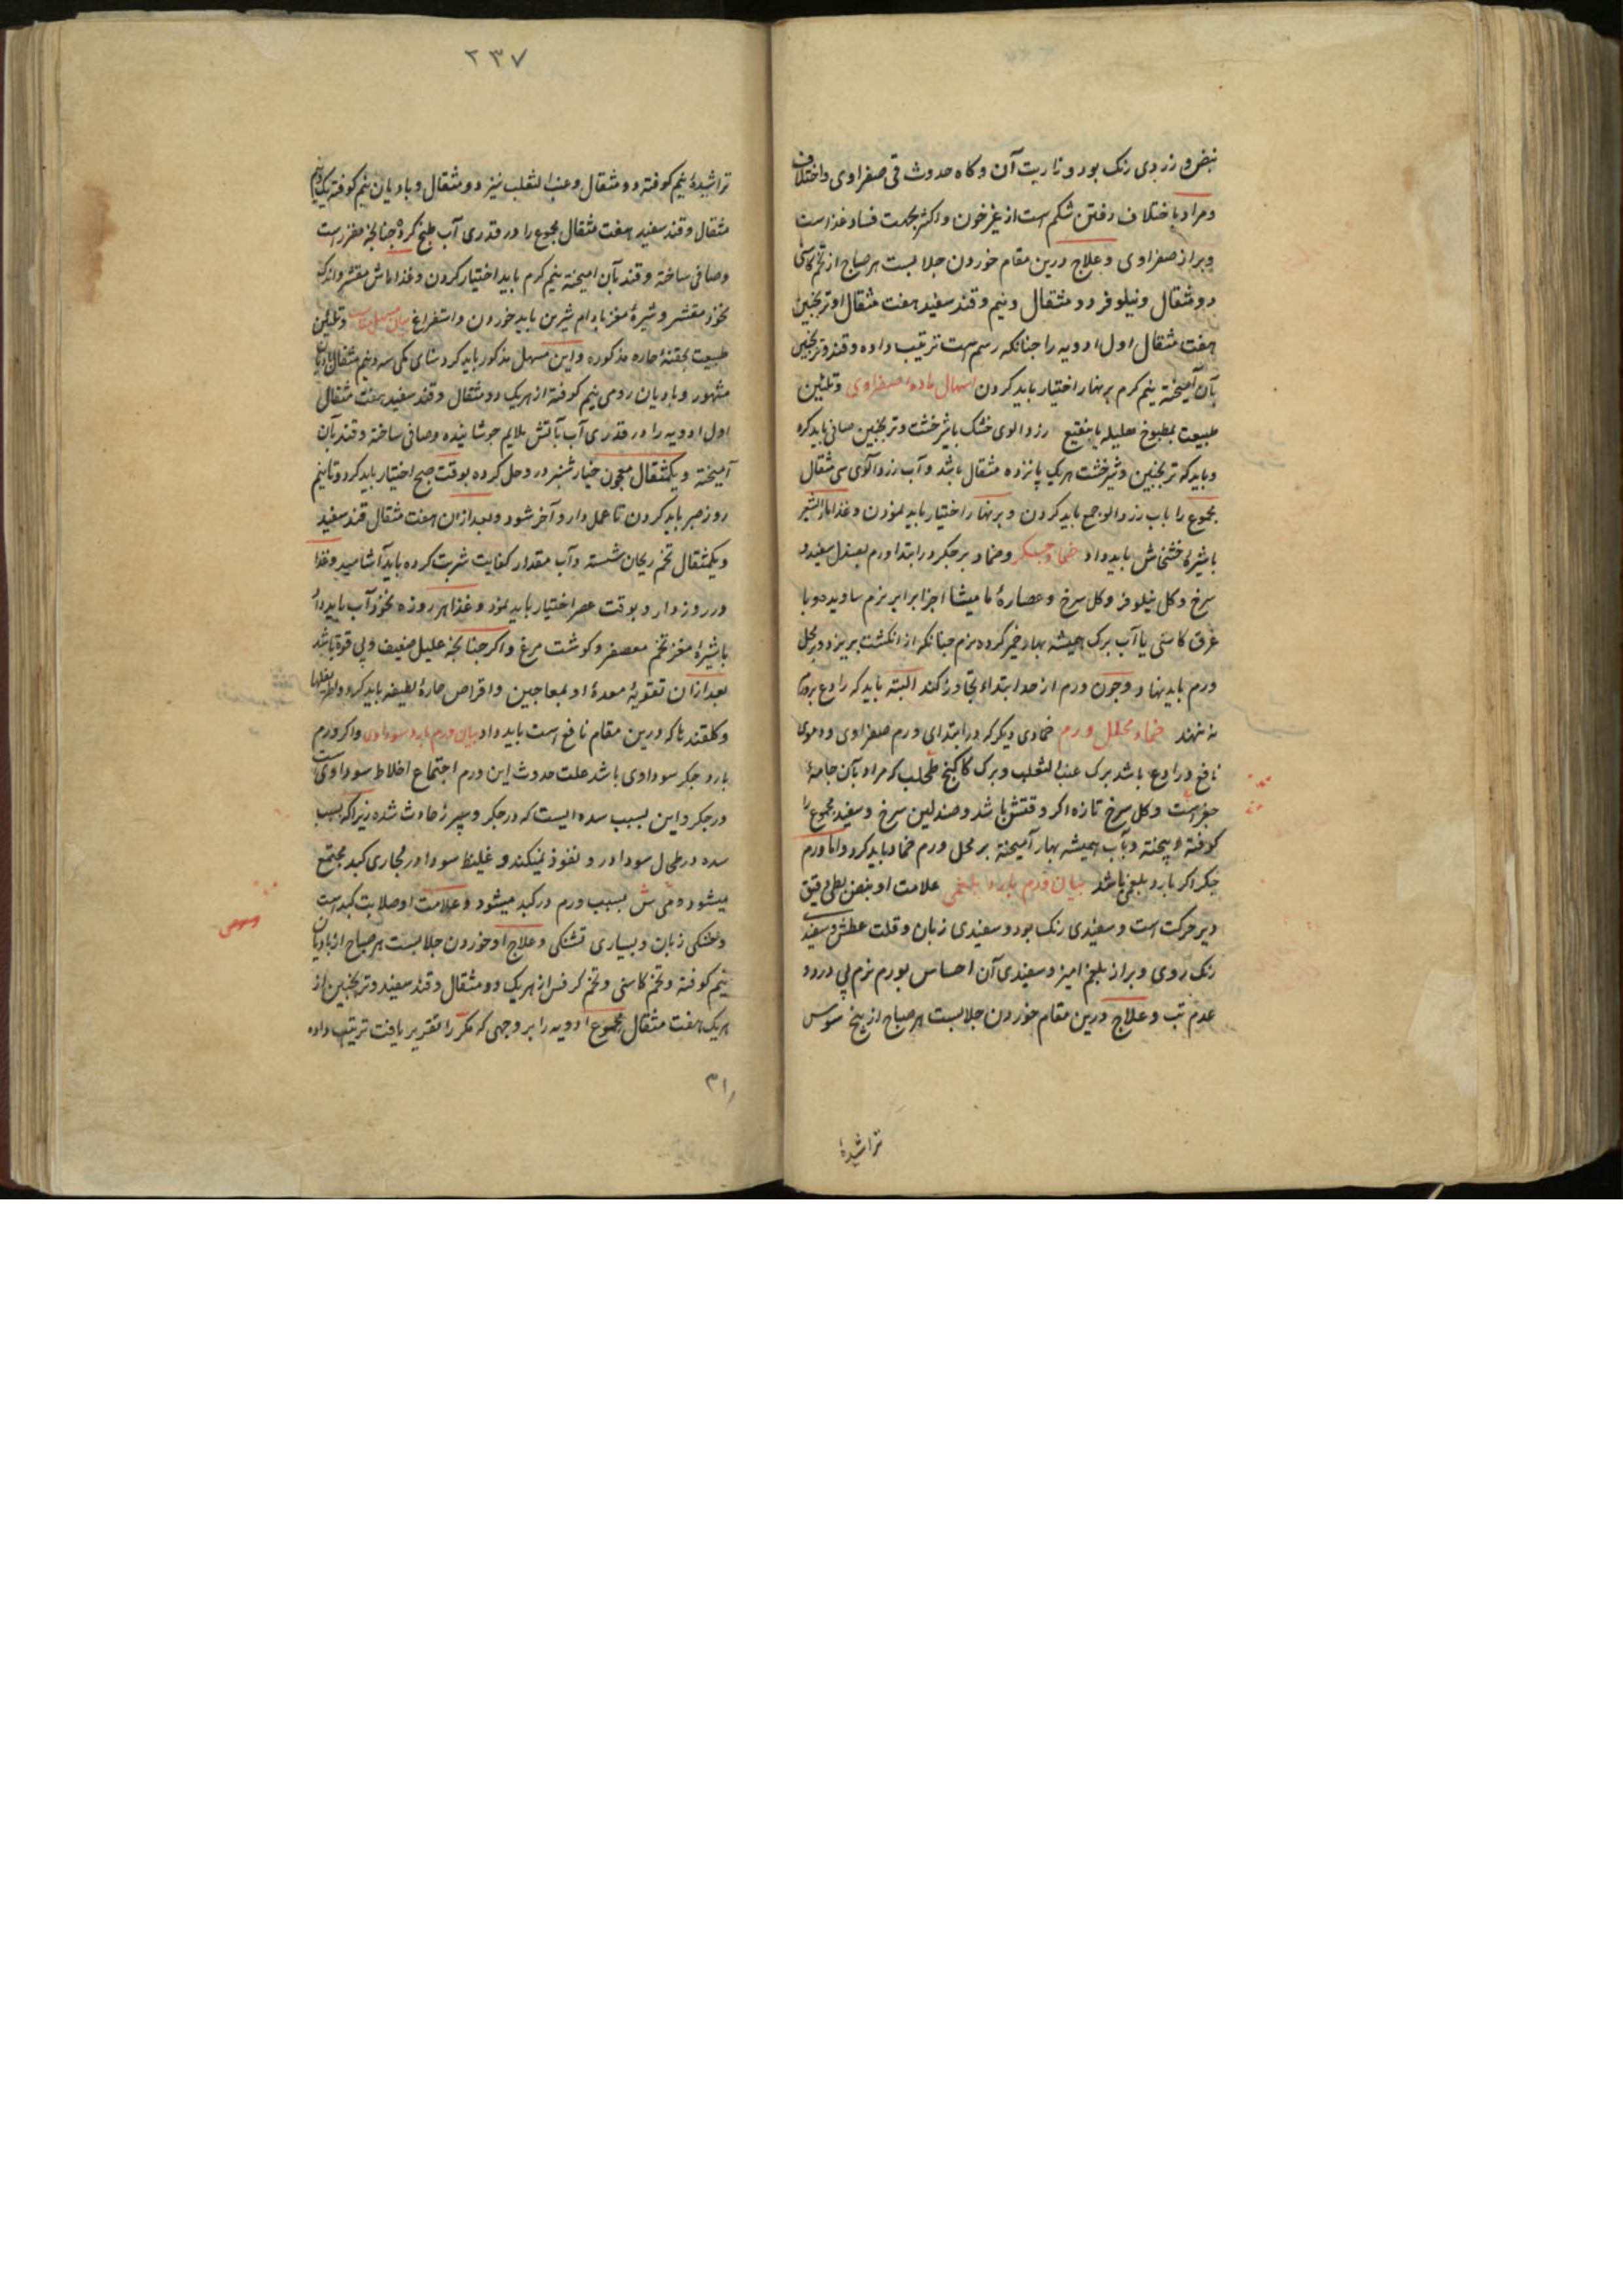 نبض و زردی رنک بود و ناریت آن و کاه حدوث قی صفراوی و اختلاف
و مراد باختلاف رفتن شکم است از غیر خون و اکثر بجهت فساد غذا است
و براز صفراوی و علاج درین مقام خوردن جلابست هر صباح از تخم کاسنی
دو مثقال و نیلوفر دو مثقال و نیم و قند سفید هفت مثقال و ترنجبین
هفت مثقال اول ادویه را جنانکه رسم است ترتیب داده و قند و ترنجبین
بآن آمیخته نیم کرم بر نهار اختیار باید کردن اسهال ماده صفراوی و تلیین
طبیعت بمطبوخ هلیله یا بنقیع زردالوی خشک با شیرخشت و ترنجبین صافی باید کرد
و باید که ترنجبین و شیرخشت هر یک پانزده مثقال باشد و آب زردآلوی سی مثقال
مجموع را باب زردالو جمع باید کردن و بر نهار اختیار باید نمودن و غذا ماء الشعیر
با شیره خشخاش باید داد ضماد جکر و ضماد بر جکر در ابتدا ورم بصندل سفید و
سرخ و کل نیلوفر و کل سرخ و عصارهٔ مامیشا اجزا برابر نرم ساویده و با
عرق کاسنی یا آب برک همیشه بهار خمیر کرده نرم جنانکه از انکشت بریزد و بر محل
ورم باید نهاد و جون ورم از حد ابتدا تجاوز کند البته باید که رادع برو
نه نهند ضماد محلل ورم ضمادی دیکر که در ابتدای ورم صفراوی و دموی
نافع و رادع باشد برک عنب الثعلب و برک کاکنج طحلب که مراد بآن جامهٔ
است و کل سرخ تازه اکر وقتش باشد و صندلین سرخ و سفید مجموع را
کوفته و بیخته و بآب همیشه بهار آمیخته بر محل ورم ضماد باید کرد و اما ورم
جکر اکر بارد بلغمی باشد بیان ورم بارد بلغمی علامت او نبض بطی دقیق
دیر حرکت است و سفیدی رنک بود و سفیدی زبان و قلت عطش و سفیدی
رنک روی و براز بلجم امیز و سفیدی آن احساس بورم نرم بی درد و
عدم تب و علاج درین مقام خوردن جلابست هر صباح از بیخ سوس
تراشیدهٔ
۲۳۷
تراشیدهٔ نیم کوفته دو مثقال و عنب الثعلب نیز دو مثقال و بادیان نیم کوفته یک و نیم
مثقال و قند سفید هفت مثقال مجموع را در قدری آب طبخ کرده جنانجه مقرر است
و صافی ساخته و قند بآن امیخته نیم کرم باید اختیار کردن و غذا ماش مقشر و اندک
نخود مقشر و شیرهٔ مغز بادام شیرین باید خوردن و استفراغ و تلیین
طبیعت بحقنهٔ حاره مذکوره و این مسهل مذکور باید کرد سنای مکی سه و نیم مثقال بادیان
مشهور و بادیان رومی نیم کوفته از هر یک دو مثقال و قند سفید هفت مثقال
اول ادویه را در قدری آب بآتش ملایم جوشانیده و صافی ساخته و قند بآن
آمیخته و یکمثقال معجون خیارشنبر درو حل کرده بوقت صبح اختیار باید کرد و تا نیم
روز صبر باید کردن تا عمل دارو آخر شود و بعد ازان هفت مثقال قند سفید
و یکمثقال تخم ریحان شسته و آب مقدار کفایت شربت کرده باید آشامید و غذا
در روز دارو بوقت عصر اختیار باید نمود و غذا هر روزه نخودآب باید داد
با شیرهٔ مغز تخم معصفر و کوشت مرغ و اکر جنانجه علیل ضعیف و بی قوة باشد
بعد ازان تقویهٔ معدهٔ او بمعاجین و اقراص حارهٔ لطیفه باید کرد
و کلقندها که درین مقام نافع است باید داد بیان ورم بارد سوداوی و اکر ورم
بارد جکر سوداوی باشد علت حدوث این ورم اجتماع اخلاط سوداوی است
در جکر و این بسبب سده ایست که در جکر و سپرز حادث شده زیرا که بسبب
سده در طحال سودا درو نفوذ نمیکند و غلیظ سودا در مجاری کبد مجتمع
میشود و بسبب ورم در کبد میشود و علامت او صلابت کبد است
و خشکی زبان و بسیاری تشنکی و علاج او خوردن جلابست هر صباح از بادیان
نیم کوفته و تخم کاسنی و تخم کرفس از هر یک دو مثقال و قند سفید و ترنجبین از
هر یک هفت مثقال مجموع ادویه را بر وجهی که مکرر تقریر یافت ترتیب داده